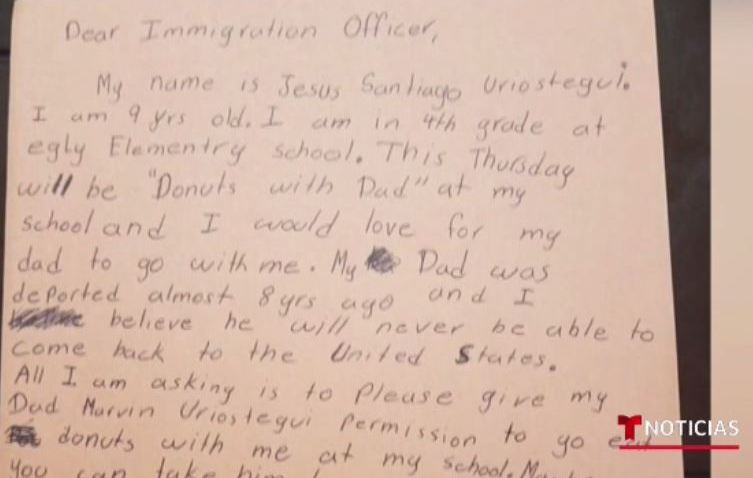 Dear Immigration Officer,
My name is Jesus Santiago Uriostegui.
I am 9 yrs old. I am in 4th grade at
egly Elementry school. This Thursday
will be "Donuts with Dad" at my
school and I would love for my
dad to go with me. My Dad was
deported almost 8 yrs ago and I
believe he will never be able to
come back to the United States.
All I am asking is to please give my
Dad Marvin Uriostegui permission to go
donuts with me at my school.
you can take him
NOTICIAS